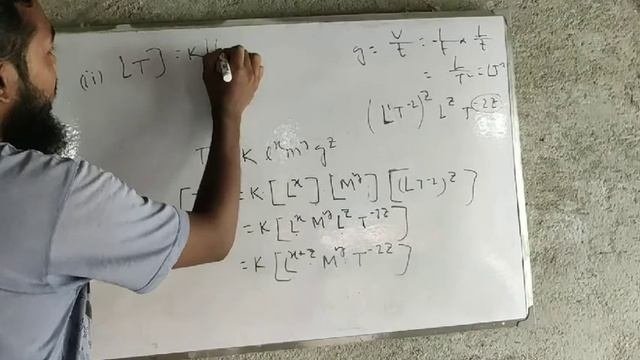 (ii) [T] = K
g = v/t = L/t × 1/t
= L/T² = LT⁻²
(L¹T⁻²)ᶻ Lᶻ T⁻²ᶻ
T K lˣ mʸ gᶻ
[ = K [Lˣ] [Mʸ] [(LT⁻²)ᶻ]
= K [Lˣ Mʸ Lᶻ T⁻²ᶻ]
= K [Lˣ⁺ᶻ Mʸ T⁻²ᶻ]